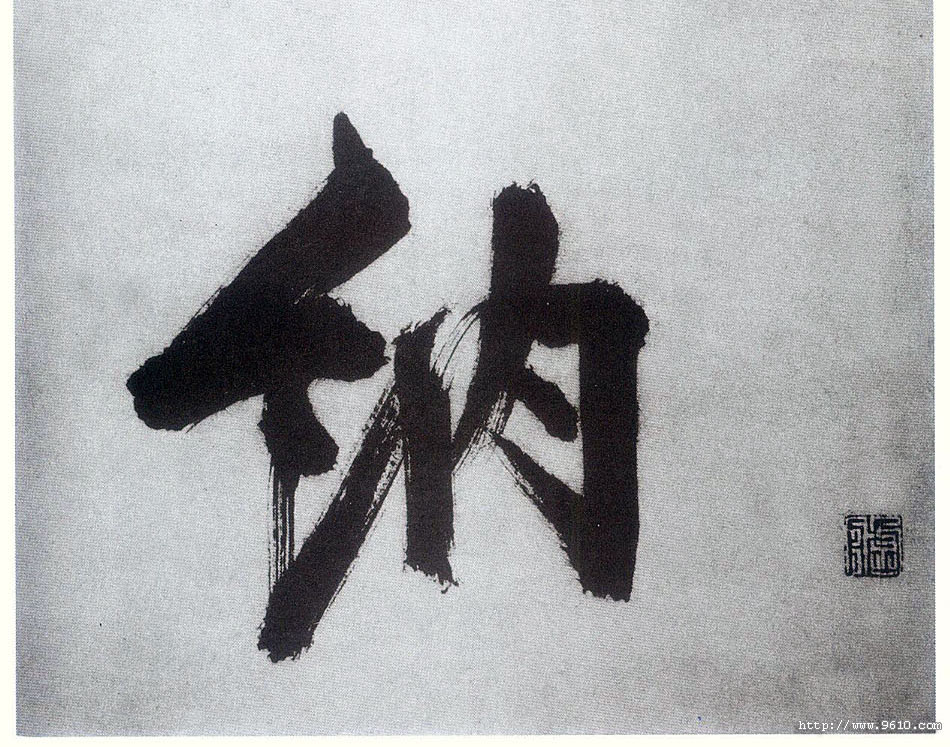 衲
http://www.9610.com